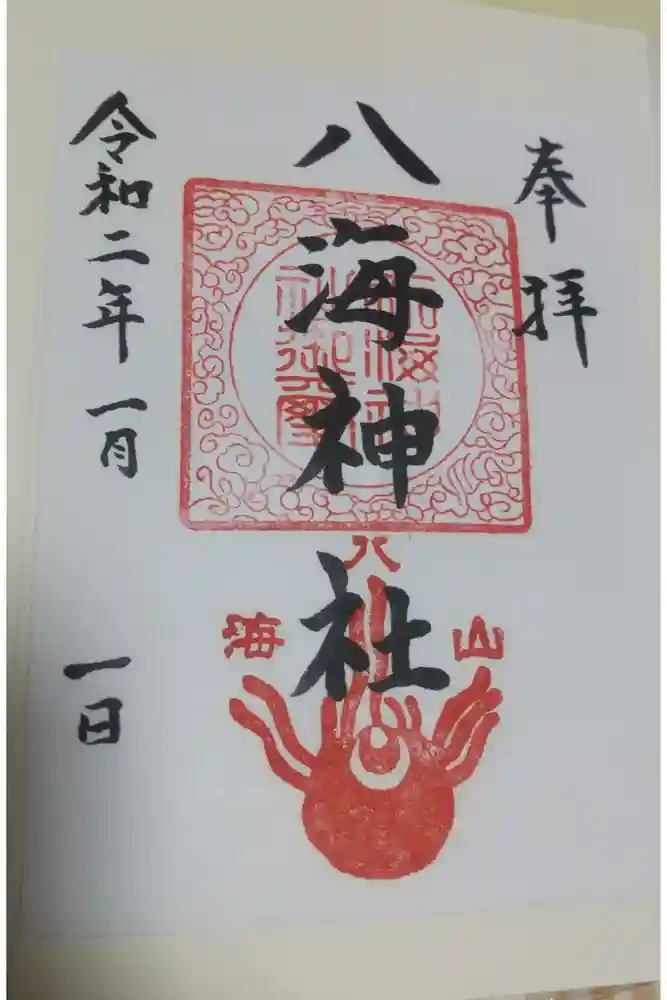 奉拝
八海神社
八
海
山
令和二年一月一日